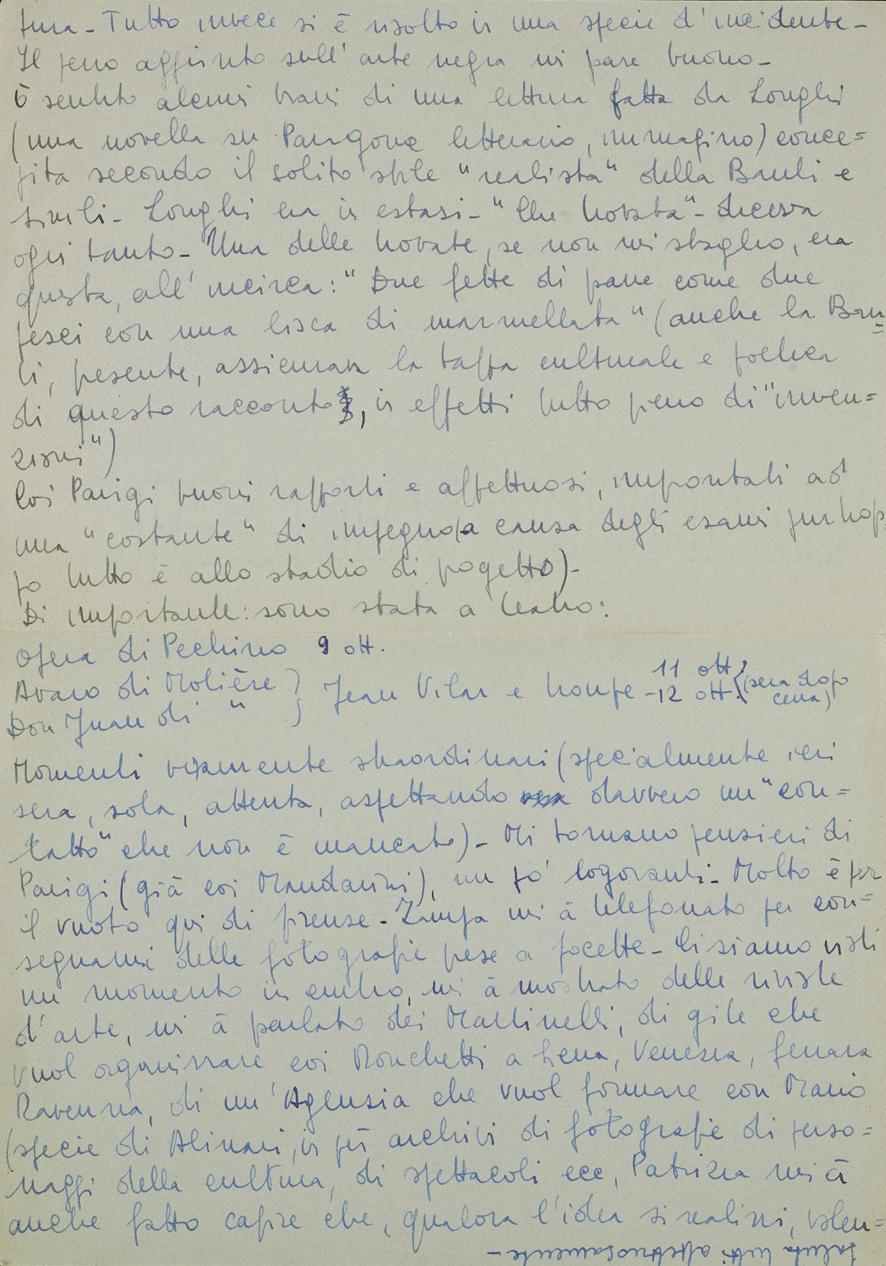 tura - Tutto invece si è risolto in una specie d'incidente -
Il pezzo aggiunto sull'arte negra mi pare buono -
ò sentito alcuni brani di una lettura fatta da Longhi
(una novella su Paragone letterario, immagino) conce=
pita secondo il solito stile "realista" della Banti e
simili - Longhi era in estasi - "Che trovata" - diceva
ogni tanto - Una delle trovate, se non mi sbaglio, era
questa, all'incirca: "Due fette di pane come due
pesci con una lisca di marmellata" (anche la Ban=
ti, presente, assicurava la tappa culturale e poetica
di questo racconto, in effetti tutto pieno di "inven=
zioni")
Coi Parigi buoni rapporti e affettuosi, improntati ad
una "costante" di impegno (a causa degli esami purtrop
po tutto è allo stadio di progetto) -
Di importante: sono stata a teatro:
Opera di Pechino 9 ott.
Avaro di Molière } Jean Vilar e troupe - 11 ott
Don Juan di " } - 12 ott. { (sera dopo cena)
Momenti veramente straordinari (specialmente ieri
sera, sola, attenta, aspettando davvero un "con=
tatto" che non è mancato) - Mi tornano pensieri di
Parigi (già coi Mandarini), un po' logoranti - Molto è per
il vuoto qui di Firenze - Zampa mi à telefonato per con=
segnarmi delle fotografie prese a Bocchette - Ci siamo visti
un momento in centro, mi à mostrato delle riviste
d'arte, mi à parlato dei Martinelli, di gite che
vuol organizzare coi Ronchetti a Siena, Venezia, Ferrara
Ravenna, di un'Agenzia che vuol formare con Mario
(specie di Alinari, in più archivi di fotografie di perso=
naggi della cultura, di spettacoli ecc, Patrizia mi à
anche fatto capire che, qualora l'idea si realizzi, volen=
saluta tutti affettuosamente -